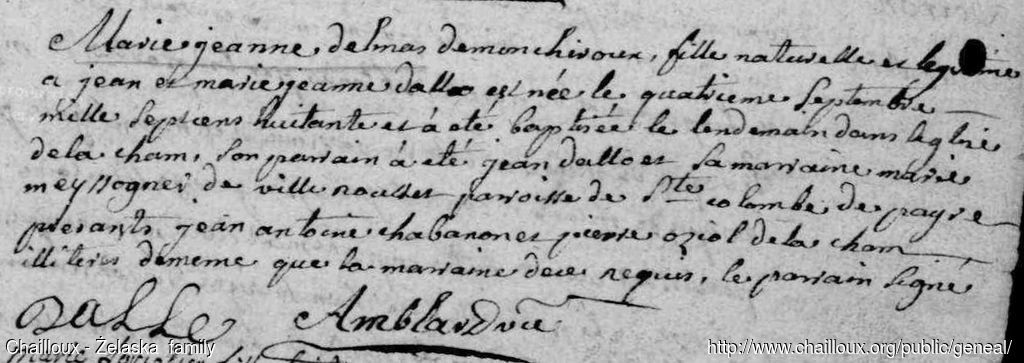 Marie jeanne delmas demonchiroux, fille naturelle et legitime
a jean et marie jeanne dalle est née le quatrieme septembre
mille septcens huitante et á eté baptisée le lendemain dans leglise
de la cham, son parrain á eté jean dalle et sa marraine marie
meyssogner de ville rousset parroisse de Ste colombe de peyre
presants jean antoine chabanon et pierre oziol de la cham
illiteres demême que la marraine dece requis, le parrain signé
DALLE Amblard vic
Chailloux - Żelaska family
http://www.chailloux.org/public/geneal/